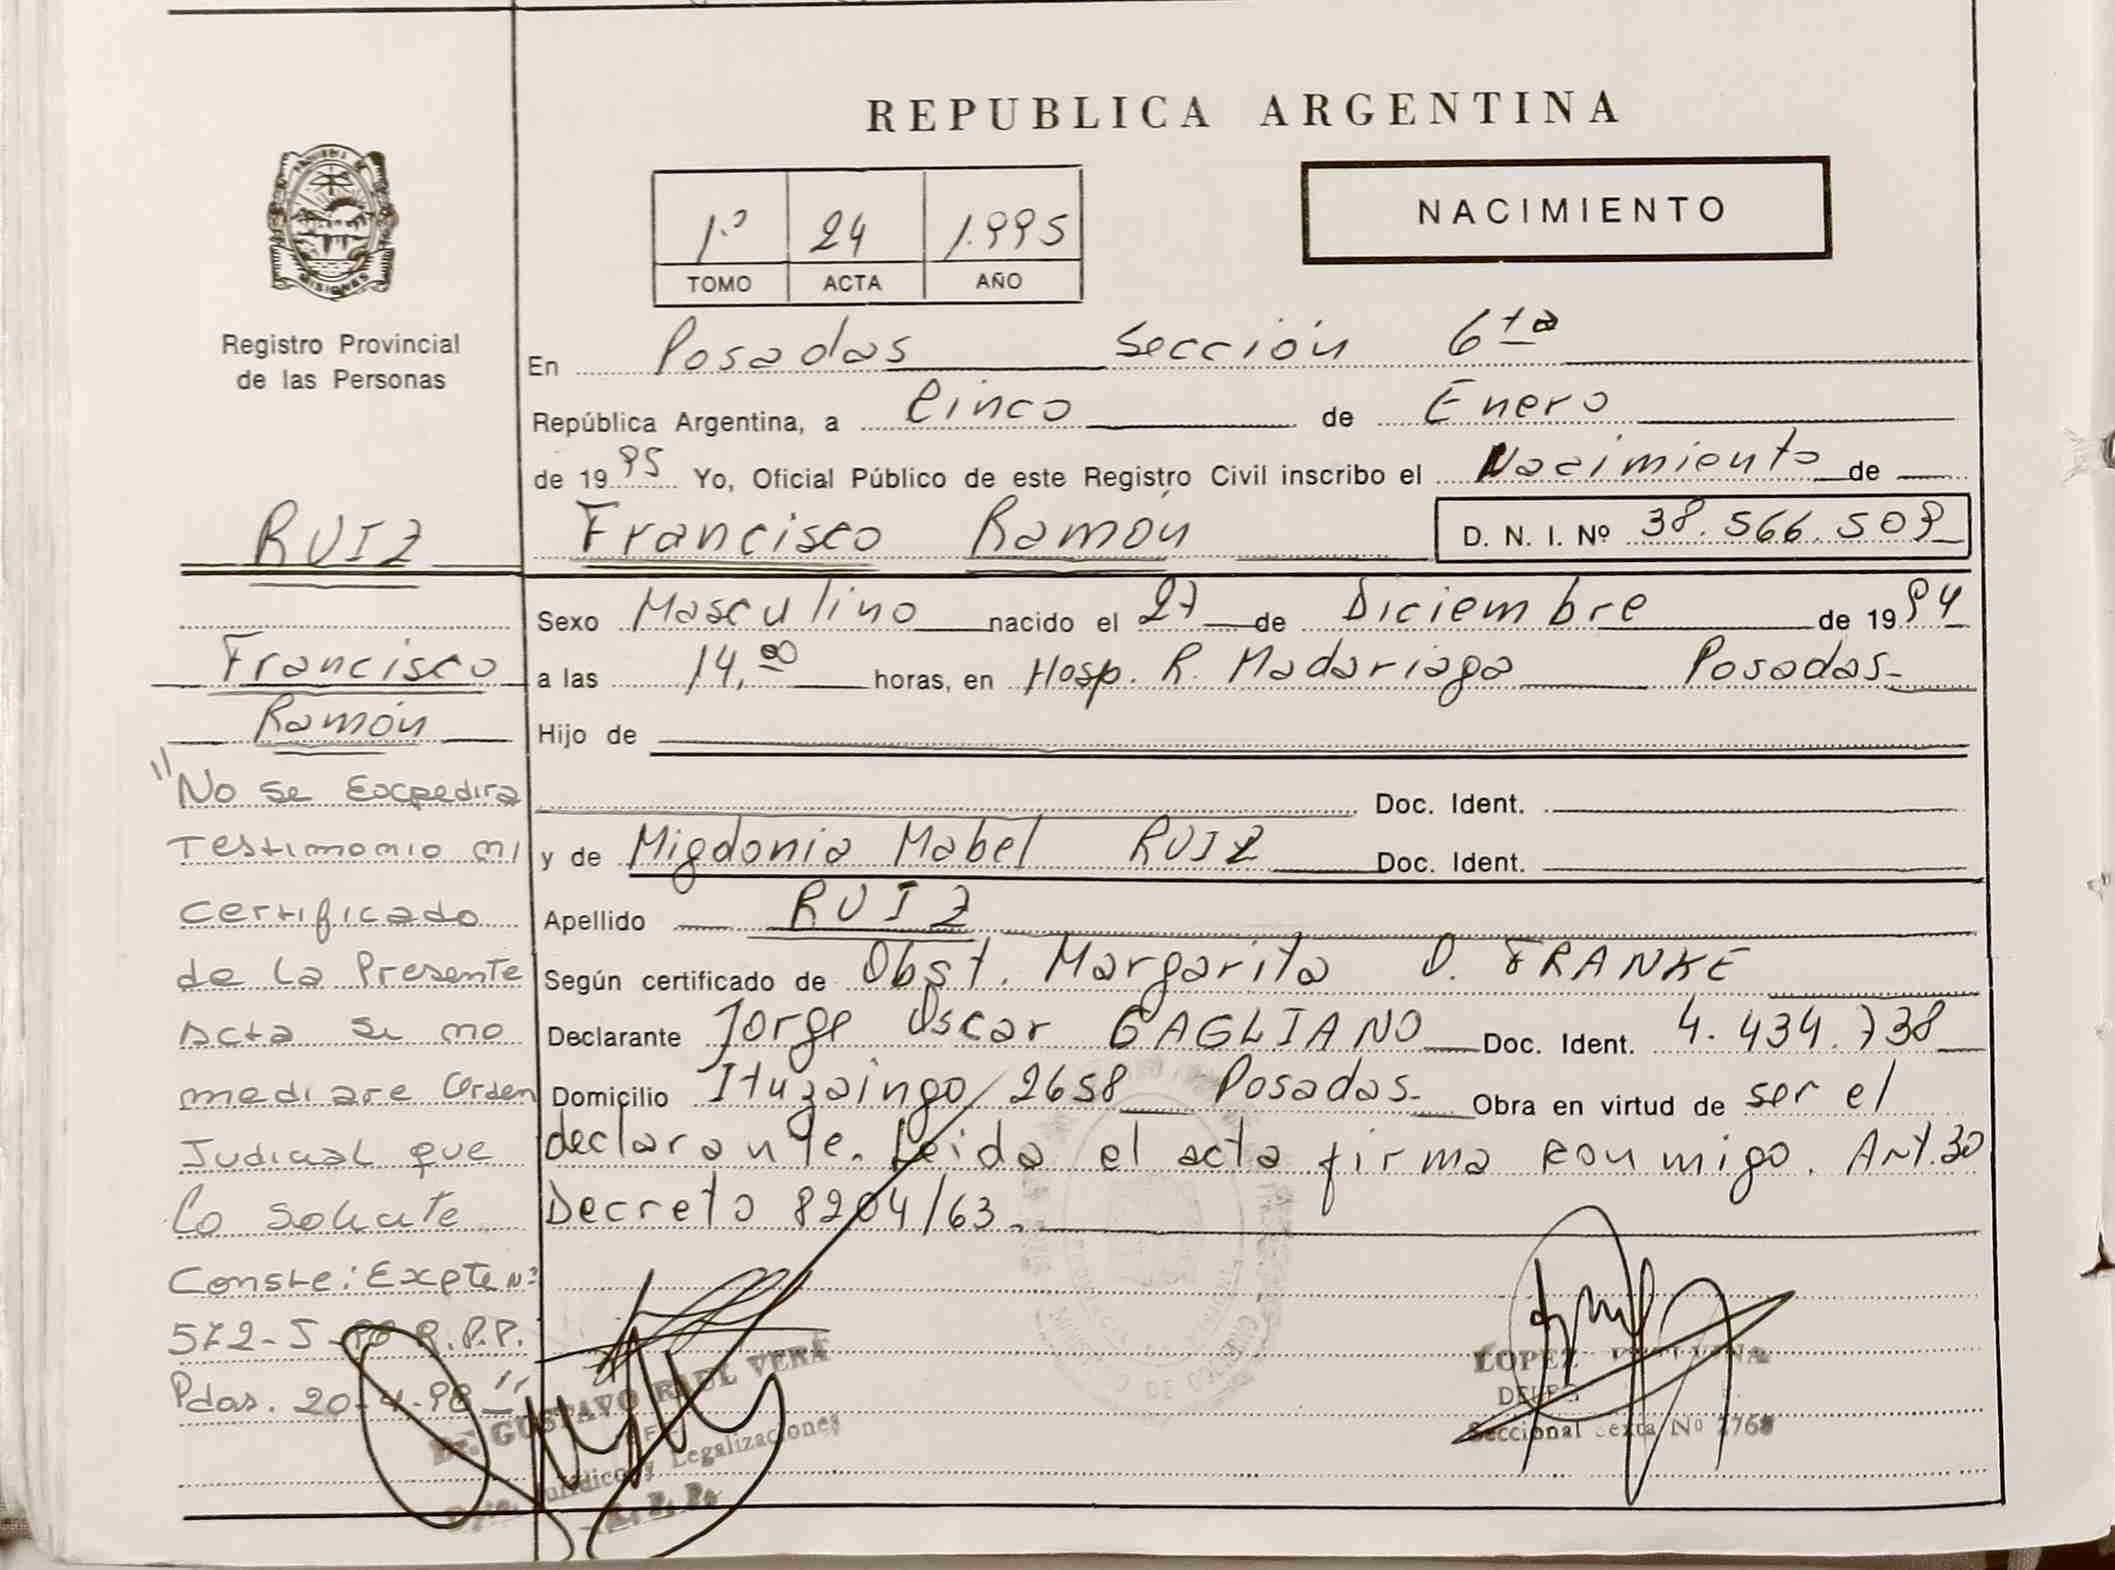 REPUBLICA ARGENTINA
NACIMIENTO
1º 24 1.995
TOMO ACTA AÑO
MISIONES
Registro Provincial
de las Personas
En Posadas Sección 6ta
República Argentina, a Cinco de Enero
de 1995 Yo, Oficial Público de este Registro Civil inscribo el Nacimiento de
RUIZ
Francisco Ramón D. N. I. Nº 38.566.509
Sexo Masculino nacido el 27 de Diciembre de 1994
Francisco
a las 14,00 horas, en Hosp. R. Madariaga Posadas-
Ramón
Hijo de
Doc. Ident.
y de Migdonia Mabel RUIZ Doc. Ident.
Apellido RUIZ
Según certificado de Obst. Margarita D. FRANKE
Declarante Jorge Oscar GAGLIANO Doc. Ident. 4.434.738
Domicilio Ituzaingo 2658 Posadas- Obra en virtud de ser el
declarante. Leida el acta firma conmigo. Art.30
Decreto 8204/63.
"No se Excpedira
Testimonio ni
Certificado
de la Presente
Acta si no
mediare Orden
Judicial que
Lo Solicite
Conste: Expte Nº
572-S-98 R.P.P.
Pdas. 20-4-98"
GUSTAVO RAUL VERA
Legalizaciones
R. P. P.
LOPEZ
Seccional Sexta Nº